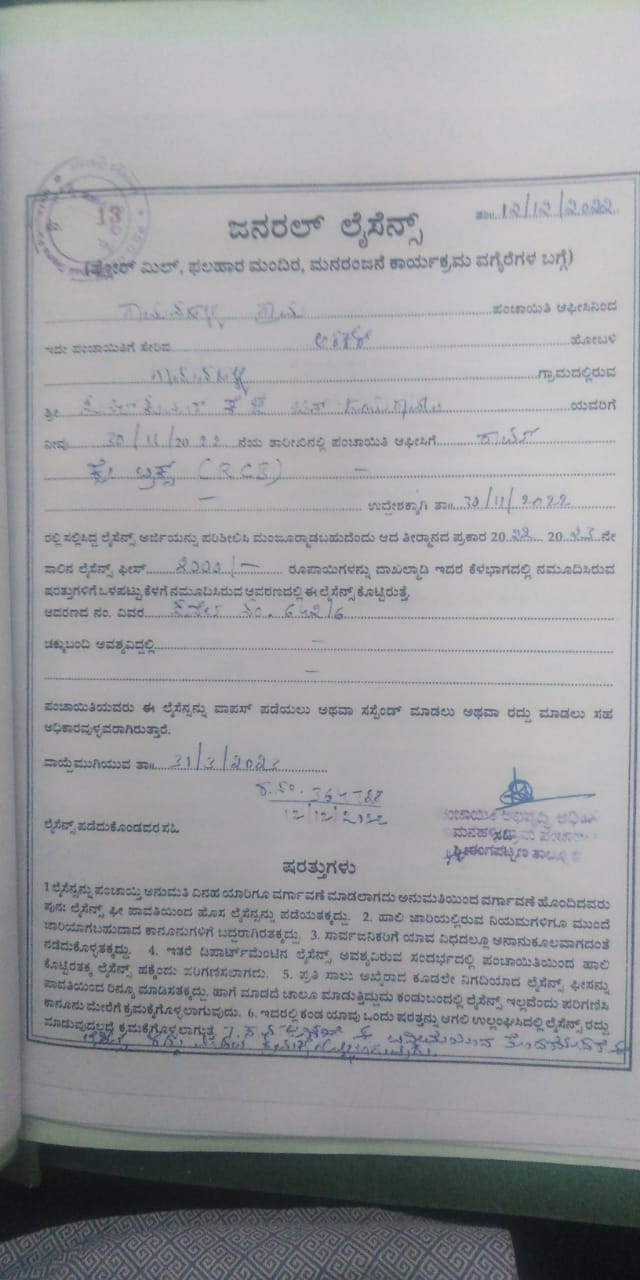 13
ಜನರಲ್ ಲೈಸೆನ್ಸ್
ತಾ॥ 12/12/2022
(ಫ್ಲೋರ್ ಮಿಲ್, ಫಲಹಾರ ಮಂದಿರ, ಮನರಂಜನೆ ಕಾರ್ಯಕ್ರಮ ವಗೈರೆಗಳ ಬಗ್ಗೆ)
ಗ್ರಾಮ ಪಂಚಾಯಿತಿ ಆಫೀಸಿನಿಂದ
ಇದೇ ಪಂಚಾಯಿತಿಗೆ ಸೇರಿದ ಹೋಬಳಿ
ಗ್ರಾಮದಲ್ಲಿರುವ
ಶ್ರೀ ಯವರಿಗೆ
ನೀವು 30/11/2022 ನೆಯ ತಾರೀಖಿನಲ್ಲಿ ಪಂಚಾಯಿತಿ ಆಫೀಸಿಗೆ
ಕ್ಲೇ ಬ್ರಿಕ್ಸ್ (RCB) –
– ಉದ್ದೇಶಕ್ಕಾಗಿ ತಾ॥ 30/11/2022
ರಲ್ಲಿ ಸಲ್ಲಿಸಿದ್ದ ಲೈಸೆನ್ಸ್ ಅರ್ಜಿಯನ್ನು ಪರಿಶೀಲಿಸಿ ಮಂಜೂರ್ಮಾಡಬಹುದೆಂದು ಆದ ತೀರ್ಮಾನದ ಪ್ರಕಾರ 2022 2023 ನೇ
ಸಾಲಿನ ಲೈಸೆನ್ಸ್ ಫೀಸ್ 2000/– ರೂಪಾಯಿಗಳನ್ನು ದಾಖಲ್ಮಾಡಿ ಇದರ ಕೆಳಭಾಗದಲ್ಲಿ ನಮೂದಿಸಿರುವ
ಷರತ್ತುಗಳಿಗೆ ಒಳಪಟ್ಟು ಕೆಳಗೆ ನಮೂದಿಸಿರುವ ಆವರಣದಲ್ಲಿ ಈ ಲೈಸೆನ್ಸ್ ಕೊಟ್ಟಿರುತ್ತೆ.
ಆವರಣದ ನಂ. ವಿವರ ನಂ. 642/6
ಚಕ್ಕುಬಂದಿ ಅವಶ್ಯವಿದ್ದಲ್ಲಿ –
–
ಪಂಚಾಯಿತಿಯವರು ಈ ಲೈಸೆನ್ಸನ್ನು ವಾಪಸ್ ಪಡೆಯಲು ಅಥವಾ ಸಸ್ಪೆಂಡ್ ಮಾಡಲು ಅಥವಾ ರದ್ದು ಮಾಡಲು ಸಹ
ಅಧಿಕಾರವುಳ್ಳವರಾಗಿರುತ್ತಾರೆ.
ವಾಯ್ದೆಮುಗಿಯುವ ತಾ॥ 31/3/2023
12/12/2022
ಲೈಸೆನ್ಸ್ ಪಡೆದುಕೊಂಡವರ ಸಹಿ
ಪಂಚಾಯಿತಿ ಅಭಿವೃದ್ಧಿ
ಗ್ರಾಮ ಪಂಚಾ
ಶ್ರೀರಂಗಪಟ್ಟಣ ತಾಲ್ಲೂಕು
ಷರತ್ತುಗಳು
1 ಲೈಸೆನ್ಸನ್ನು ಪಂಚಾಯ್ತಿ ಅನುಮತಿ ವಿನಹ ಯಾರಿಗೂ ವರ್ಗಾವಣೆ ಮಾಡಲಾಗದು ಅನುಮತಿಯಿಂದ ವರ್ಗಾವಣೆ ಹೊಂದಿದವರು
ಪುನಃ ಲೈಸೆನ್ಸ್ ಫೀ ಪಾವತಿಯಿಂದ ಹೊಸ ಲೈಸೆನ್ಸನ್ನು ಪಡೆಯತಕ್ಕದ್ದು. 2. ಹಾಲಿ ಜಾರಿಯಲ್ಲಿರುವ ನಿಯಮಗಳಿಗೂ ಮುಂದೆ
ಜಾರಿಯಾಗಬಹುದಾದ ಕಾನೂನುಗಳಿಗೆ ಬದ್ಧರಾಗಿರತಕ್ಕದ್ದು. 3. ಸಾರ್ವಜನಿಕರಿಗೆ ಯಾವ ವಿಧದಲ್ಲೂ ಅನಾನುಕೂಲವಾಗದಂತೆ
ನಡೆದುಕೊಳ್ಳತಕ್ಕದ್ದು. 4. ಇತರೆ ಡಿಪಾರ್ಟ್‌ಮೆಂಟಿನ ಲೈಸೆನ್ಸ್ ಅವಶ್ಯವಿರುವ ಸಂದರ್ಭದಲ್ಲಿ ಪಂಚಾಯಿತಿಯಿಂದ ಹಾಲಿ
ಕೊಟ್ಟಿರತಕ್ಕ ಲೈಸೆನ್ಸ್ ಹಕ್ಕೆಂದು ಪರಿಗಣಿಸಲಾಗದು. 5. ಪ್ರತಿ ಸಾಲು ಅಖೈರಾದ ಕೂಡಲೇ ನಿಗದಿಯಾದ ಲೈಸೆನ್ಸ್ ಫೀಸನ್ನು
ಪಾವತಿಯಿಂದ ರಿನ್ಯೂ ಮಾಡಿಸತಕ್ಕದ್ದು. ಹಾಗೆ ಮಾಡದೆ ಚಾಲೂ ಮಾಡುತ್ತಿದ್ದುದು ಕಂಡುಬಂದಲ್ಲಿ ಲೈಸೆನ್ಸ್ ಇಲ್ಲವೆಂದು ಪರಿಗಣಿಸಿ
ಕಾನೂನು ಮೇರೆಗೆ ಕ್ರಮಕೈಗೊಳ್ಳಲಾಗುವುದು. 6. ಇದರಲ್ಲಿ ಕಂಡ ಯಾವು ಒಂದು ಷರತ್ತನ್ನು ಆಗಲಿ ಉಲ್ಲಂಘಿಸಿದಲ್ಲಿ ಲೈಸೆನ್ಸ್ ರದ್ದು
ಮಾಡುವುದಲ್ಲದೆ ಕ್ರಮಕೈಗೊಳ್ಳಲಾಗುತ್ತೆ 7.